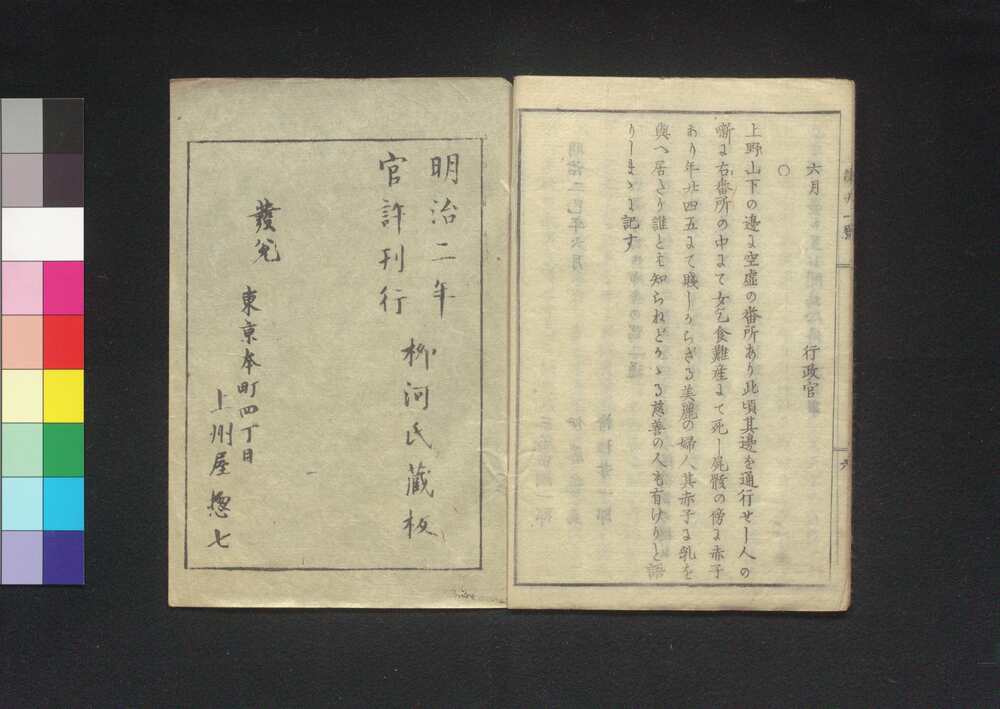 六月
行政官
○
上野山下の邊に空虚の番所あり此頃其邊を通行せし人の
噺に右番所の中にて女乞食難産にて死し屍骸の傍に赤子
あり年廿四五にて賤しからざる美麗の婦人其赤子に乳を
與へ居たり誰とも知らねどかゝる慈善の人も有けりと語
りしまゝに記す
六
明治二年
官許刊行
柳河氏藏板
發兌
東京本町四丁目
上州屋惣七